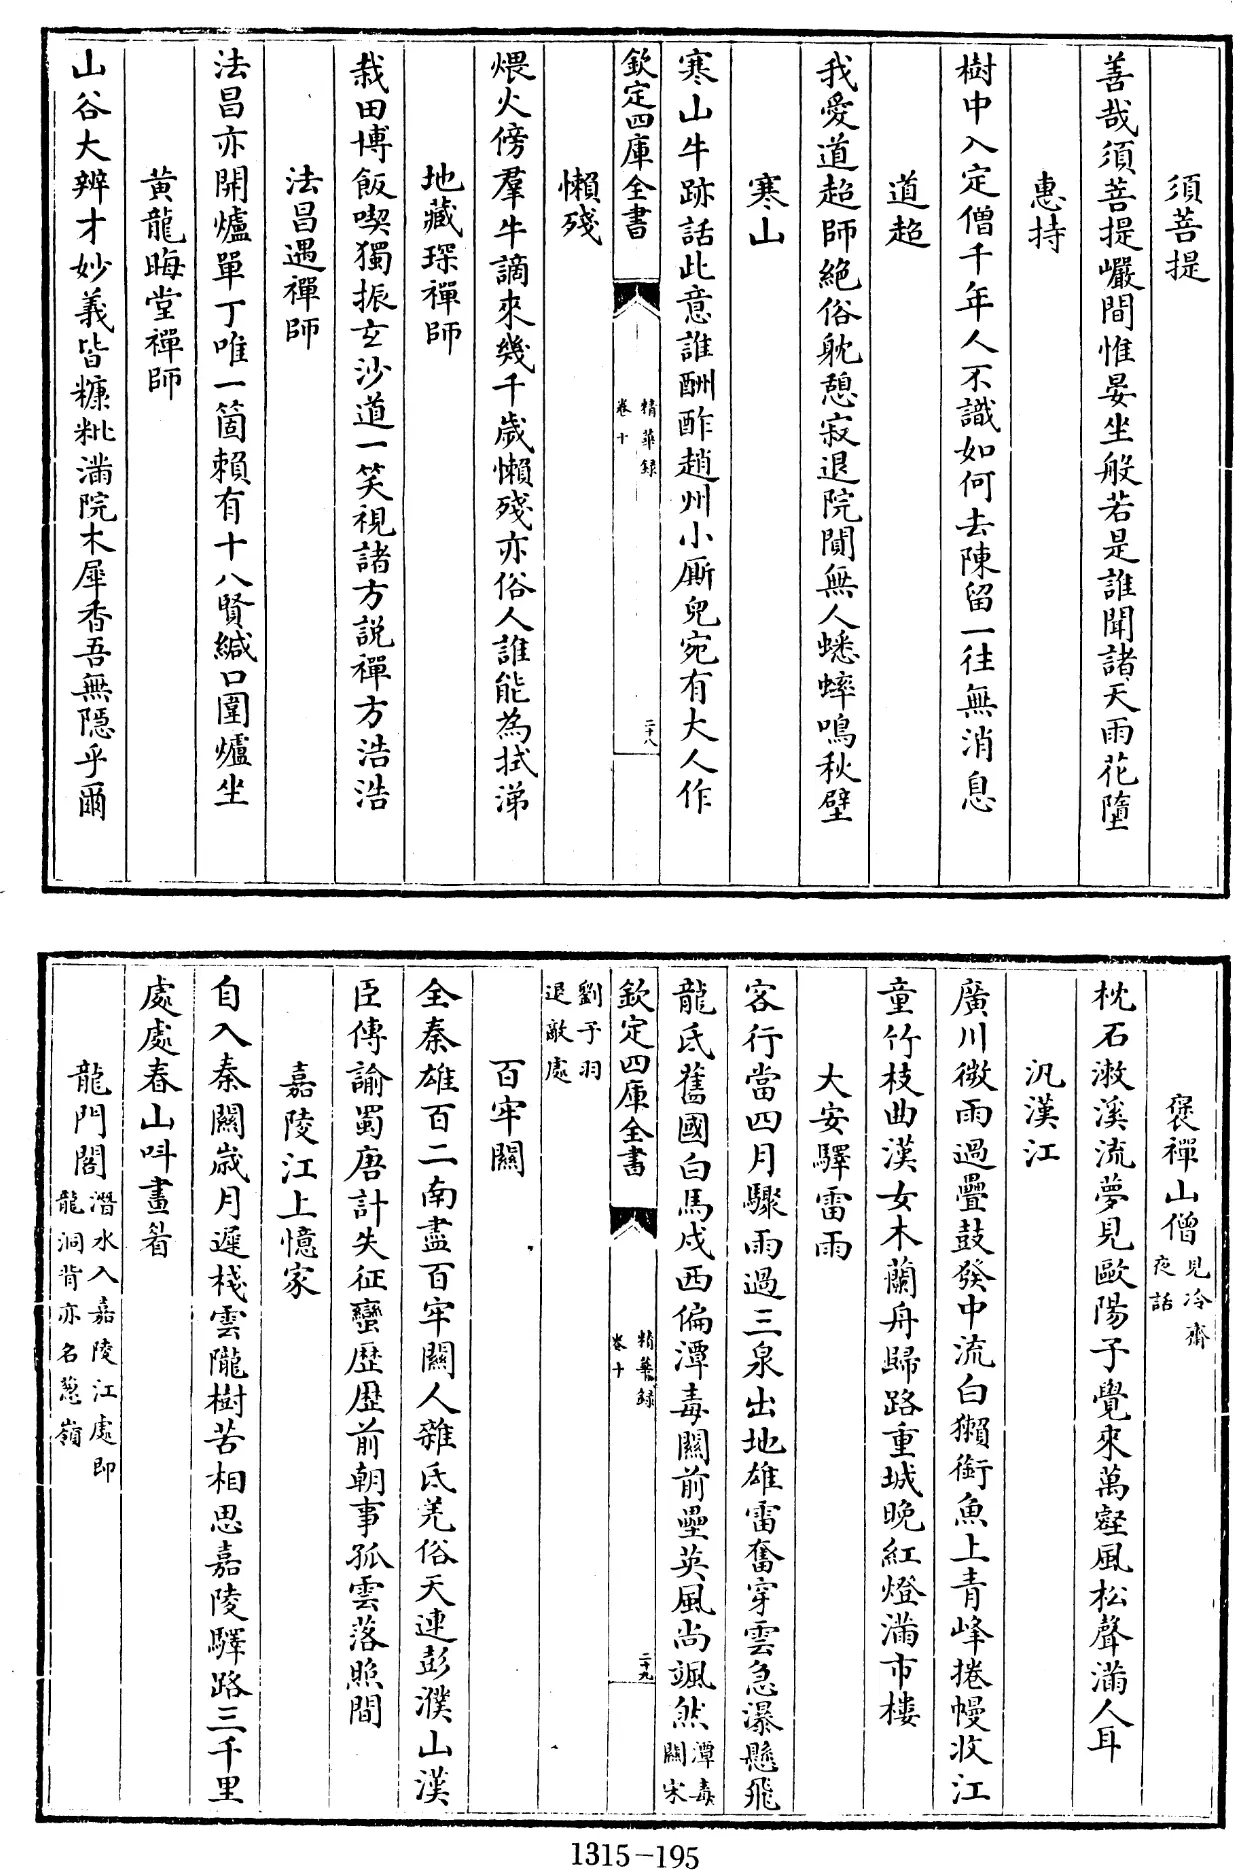 須菩提
善哉須菩提巖間惟晏坐般若是誰聞諸天雨花墮
惠持
樹中入定僧千年人不識如何去陳留一往無消息
道超
我愛道超師絶俗躭憩寂退院闃無人蟋蟀鳴秋壁
寒山
寒山牛跡話此意誰酬酢趙州小廝兒宛有大人作
欽定四庫全書
精華録
卷十
二十八
懶殘
煨火傍羣牛謫來幾千歲懶殘亦俗人誰能為拭涕
地藏琛禪師
栽田博飯喫獨振玄沙道一笑視諸方説禪方浩浩
法昌遇禪師
法昌亦開爐單丁唯一箇賴有十八賢緘口圍爐坐
黄龍晦堂禪師
山谷大辨才妙義皆糠粃滿院木犀香吾無隱乎爾
褒禪山僧見冷齋
夜話
枕石漱溪流夢見歐陽子覺來萬壑風松聲滿人耳
汎漢江
廣川微雨過疊鼓發中流白獺銜魚上青峰捲幔收江
童竹枝曲漢女木蘭舟歸路重城晚紅燈滿市樓
大安驛雷雨
客行當四月驟雨過三泉出地雄雷奮穿雲急瀑懸飛
龍氐舊國白馬戍西偏潭毒關前壘英風尚颯然潭毒
關宋
欽定四庫全書
精華録
卷十
二十九
劉子羽
退敵處
百牢關
全秦雄百二南盡百牢關人雜氐羌俗天連彭濮山漢
臣傳諭蜀唐計失征蠻歴歴前朝事孤雲落照間
嘉陵江上憶家
自入秦關歲月遲棧雲隴樹苦相思嘉陵驛路三千里
處處春山呌畫眉
龍門閣潛水入嘉陵江處即
龍洞背亦名葱嶺
1315-195